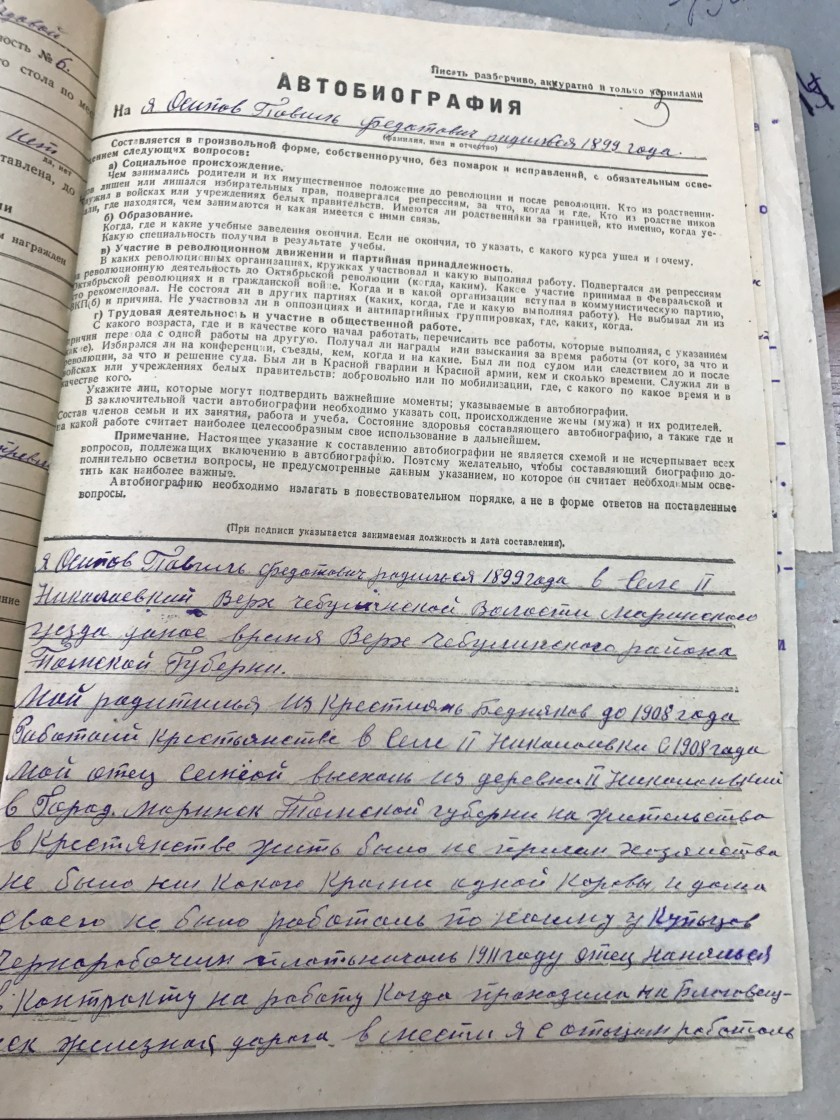 довой
ность № 6.
го стола по мес
Нет
да, нет
ставлена, до
ии
м награжден
ние
Писать разборчиво, аккуратно и только чернилами
АВТОБИОГРАФИЯ
3
На я Осипов Павиль Федотович радилься 1899 года.
(фамилия, имя и отчество)
Составляется в произвольной форме, собственноручно, без помарок и исправлений, с обязательным осве-
щением следующих вопросов:
а) Социальное происхождение.
Чем занимались родители и их имущественное положение до революции и после революции. Кто из родственни-
ков лишен или лишался избирательных прав, подвергался репрессиям, за что, когда и где. Кто из родственников
служил в войсках или учреждениях белых правительств. Имеются ли родственники за границей, кто именно, когда уе-
хали, где находятся, чем занимаются и какая имеется с ними связь.
б) Образование.
Когда, где и какие учебные заведения окончил. Если не окончил, то указать, с какого курса ушел и почему.
Какую специальность получил в результате учебы.
в) Участие в революционном движении и партийная принадлежность.
В каких революционных организациях, кружках участвовал и какую выполнял работу. Подвергался ли репрессиям
за революционную деятельность до Октябрьской революции (когда, каким). Какое участие принимал в Февральской и
Октябрьской революциях и в гражданской войне. Когда и в какой организации вступал в коммунистическую партию,
кто рекомендовал. Не состоял ли в других партиях (каких, когда, где и какую выполнял работу). Не выбывал ли из
ВКП(б) и причина. Не участвовал ли в оппозициях и антипартийных группировках, где, каких, когда.
г) Трудовая деятельность и участие в общественной работе.
С какого возраста, где и в качестве кого начал работать, перечислить все работы, которые выполнял, с указанием
причин перехода с одной работы на другую. Получал ли награды или взыскания за время работы (от кого, за что и
какие). Избирался ли на конференции, съезды, кем, когда и на какие. Был ли под судом или следствием до и после
революции, за что и решение суда. Был ли в Красной гвардии и Красной армии, кем и сколько времени. Служил ли в
войсках или учреждениях белых правительств: добровольно или по мобилизации, где, с какого по какое время и в
качестве кого.
Укажите лиц, которые могут подтвердить важнейшие моменты; указываемые в автобиографии.
В заключительной части автобиографии необходимо указать соц. происхождение жены (мужа) и их родителей.
Состав членов семьи и их занятия, работа и учеба. Состояние здоровья составляющего автобиографию, а также где и
на какой работе считает наиболее целесообразным свое использование в дальнейшем.
Примечание. Настоящее указание к составлению автобиографии не является схемой и не исчерпывает всех
вопросов, подлежащих включению в автобиографию. Поэтому желательно, чтобы составляющий биографию до-
полнительно осветил вопросы, не предусмотренные данным указанием, но которое он считает необходимым осве-
тить как наиболее важные.
Автобиографию необходимо излагать в повествовательном порядке, а не в форме ответов на поставленные
вопросы.
(При подписи указывается занимаемая должность и дата составления).
я Осипов Павиль Федотович радилься 1899 года в Селе II
Николаевкий Верх чебулинской Волости Маринского
уезда время Верх чебулинского района
Томской Губерни.
Мой радителья из Крестьянь Бедняков до 1908 года
Работали Крестьянстве в Селе II Николаевки С 1908 года
мой отец Семьёй выехаль из деревки II Николаевкий
в Город Маринск Томской губерни на жительство
в Крестянстве жить было не хозяиства
не было ни Какого Краме одной Коровы и дома
своего не было работаль по найму у Купцов
Чернорабочим 1911 году отец нанялься
Контракту на работу Когда праходила на Благовещ-
ск железная дорога вмести я с отцом работаль